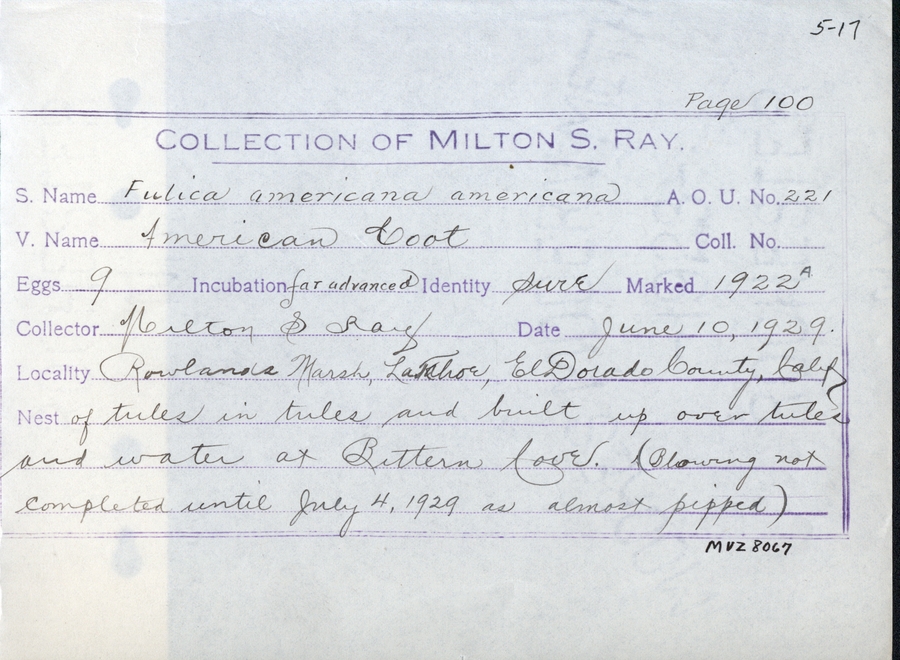 5-17
Page 100
COLLECTION OF MILTON S. RAY.
S. Name Fulica americana americana A. O. U. No. 221
V. Name American Coot Coll. No.
Eggs 9 Incubation far advanced Identity sure Marked 1922 A
Collector Milton S Ray Date June 10, 1929.
Locality Rowlands Marsh, L. Tahoe, El Dorado County, Calif
Nest of tules in tules and built up over tules
and water at Bittern Cove. (Blowing not
completed until July 4, 1929 as almost pipped)
MVZ 8067